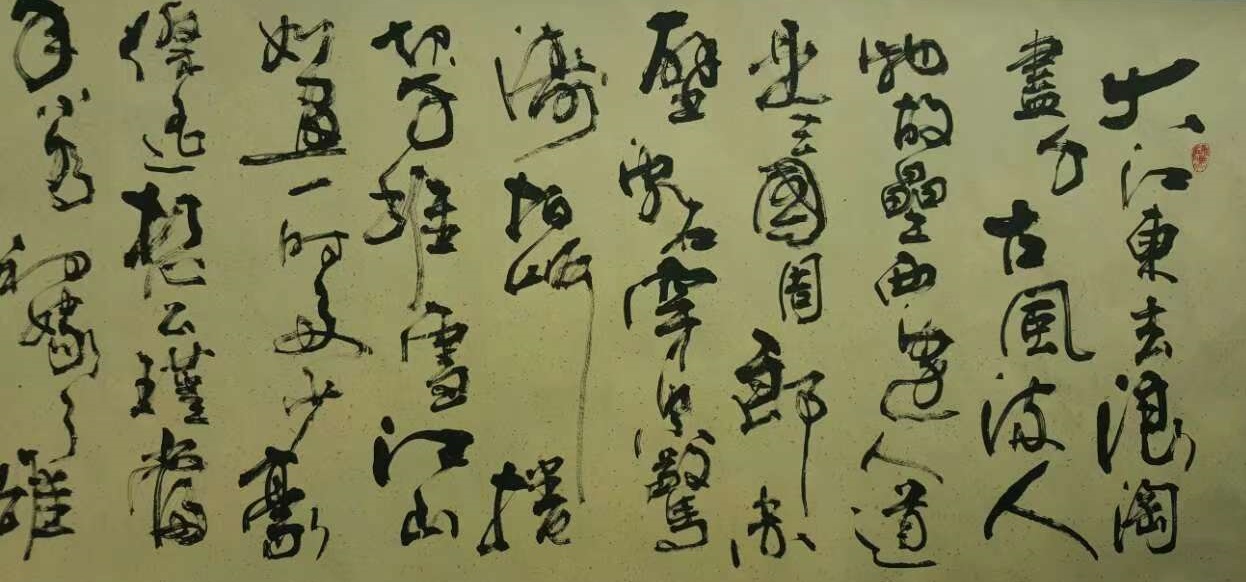 大江東去浪淘
盡千古風流人
物故壘西邊人道
是三國周郎赤
壁亂石穿空驚
濤拍岸捲
起千堆雪江山
如畫一時多少豪
傑遙想公瑾當
年小喬初嫁了雄